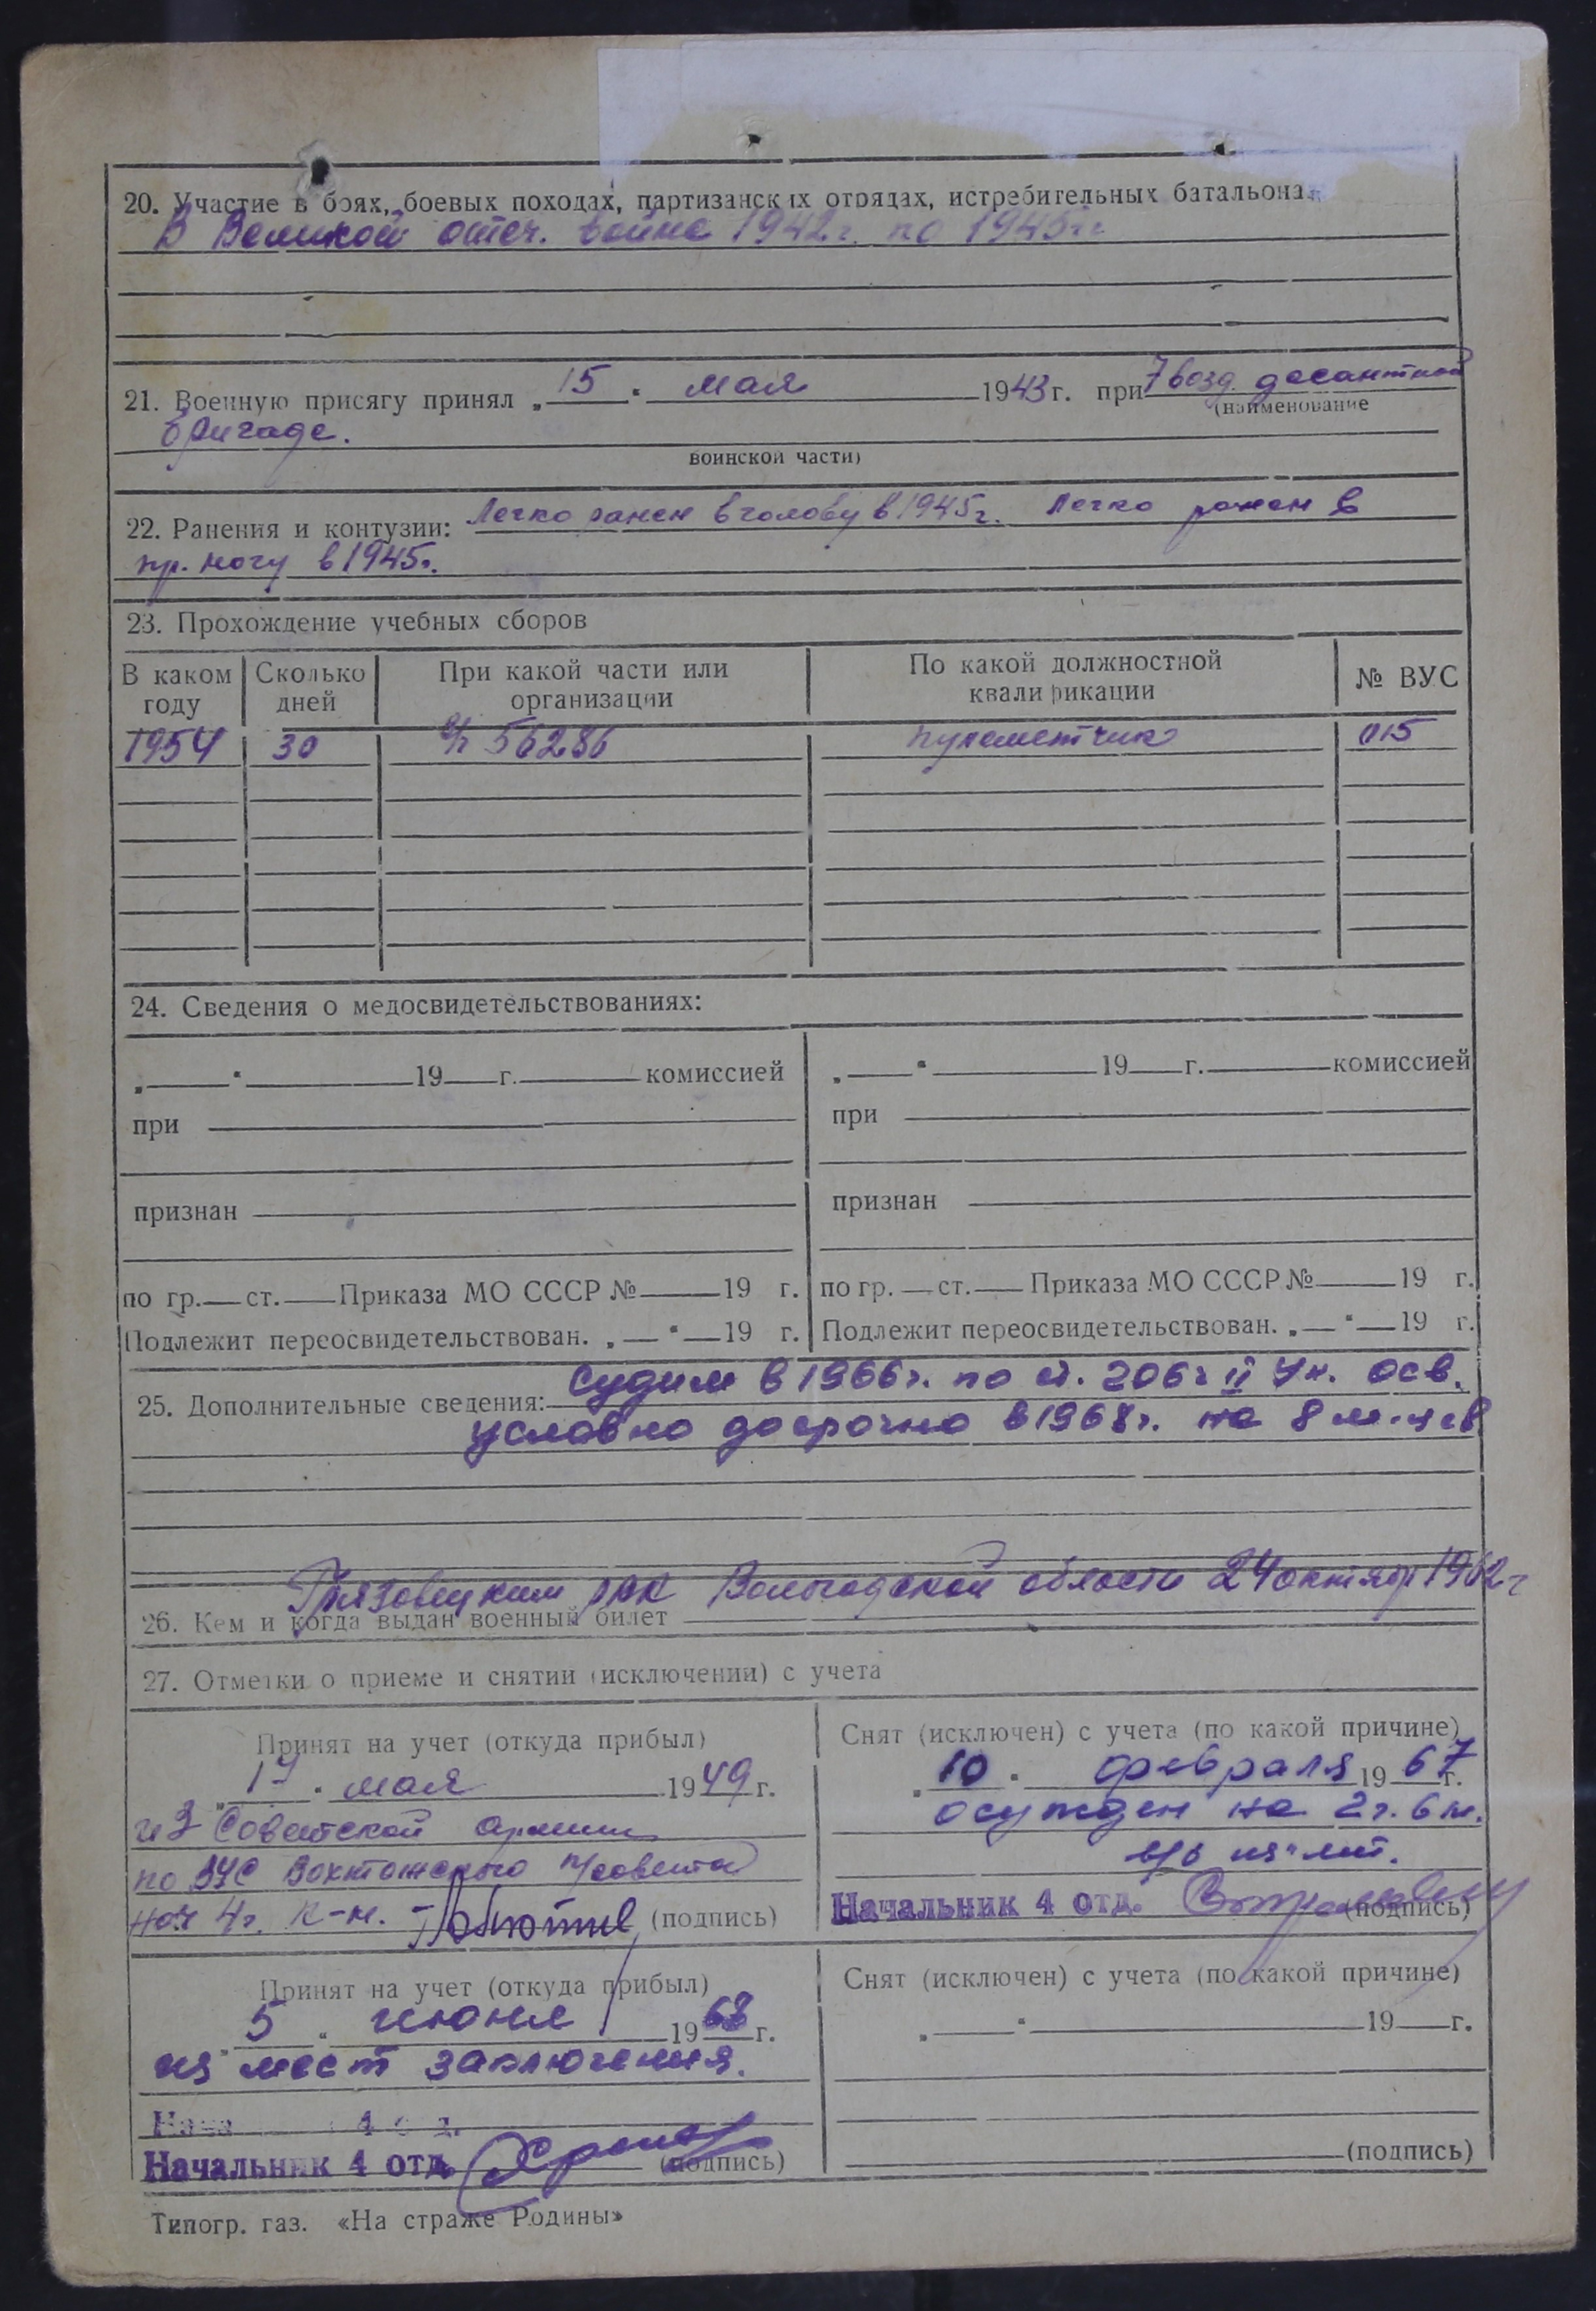 20. Участие в боях, боевых походах, партизанских отрядах, истребительных батальонах
В Великой отеч. войне 1942г. по 1945гг
21. Военную присягу принял „ 15 " мая 1943 г. при 7 возд. десантной
(наименование
бригаде.
воинской части)
22. Ранения и контузии: Легко ранен в голову в 1945г. Легко ранен в
пр. ногу в 1945г.
23. Прохождение учебных сборов
В каком году Сколько дней При какой части или организации По какой должностной квалификации № ВУС
1954 30 в/ч 56286 пулеметчик 015
24. Сведения о медосвидетельствованиях:
„ " 19 г. комиссией „ " 19 г. комиссией
при при
признан признан
по гр. ст. Приказа МО СССР № 19 г. по гр. ст. Приказа МО СССР № 19 г.
Подлежит переосвидетельствован. „ " 19 г. Подлежит переосвидетельствован. „ " 19 г.
25. Дополнительные сведения: судим в 1966г. по ст. 206 ч II Ук. осв.
условно досрочно в 1968г. на 8 м-цев
Грязовецким РВК Вологодской области 24 октябр 1962г
26. Кем и когда выдан военный билет
27. Отметки о приеме и снятии (исключении) с учета
Принят на учет (откуда прибыл)
„ 17 " мая 1949 г.
из Советской армии
по ВУС Вохтожского п/совета
нач 4г. к-н. (подпись)
Снят (исключен) с учета (по какой причине)
„ 10 " февраля 1967 г.
осужден на 2г. 6 м.
Начальник 4 отд. (подпись)
Принят на учет (откуда прибыл)
„ 5 " июня 1968 г.
из мест заключения.
Начальник 4 отд. (подпись)
Снят (исключен) с учета (по какой причине)
„ " 19 г.
(подпись)
Типогр. газ. «На страже Родины»